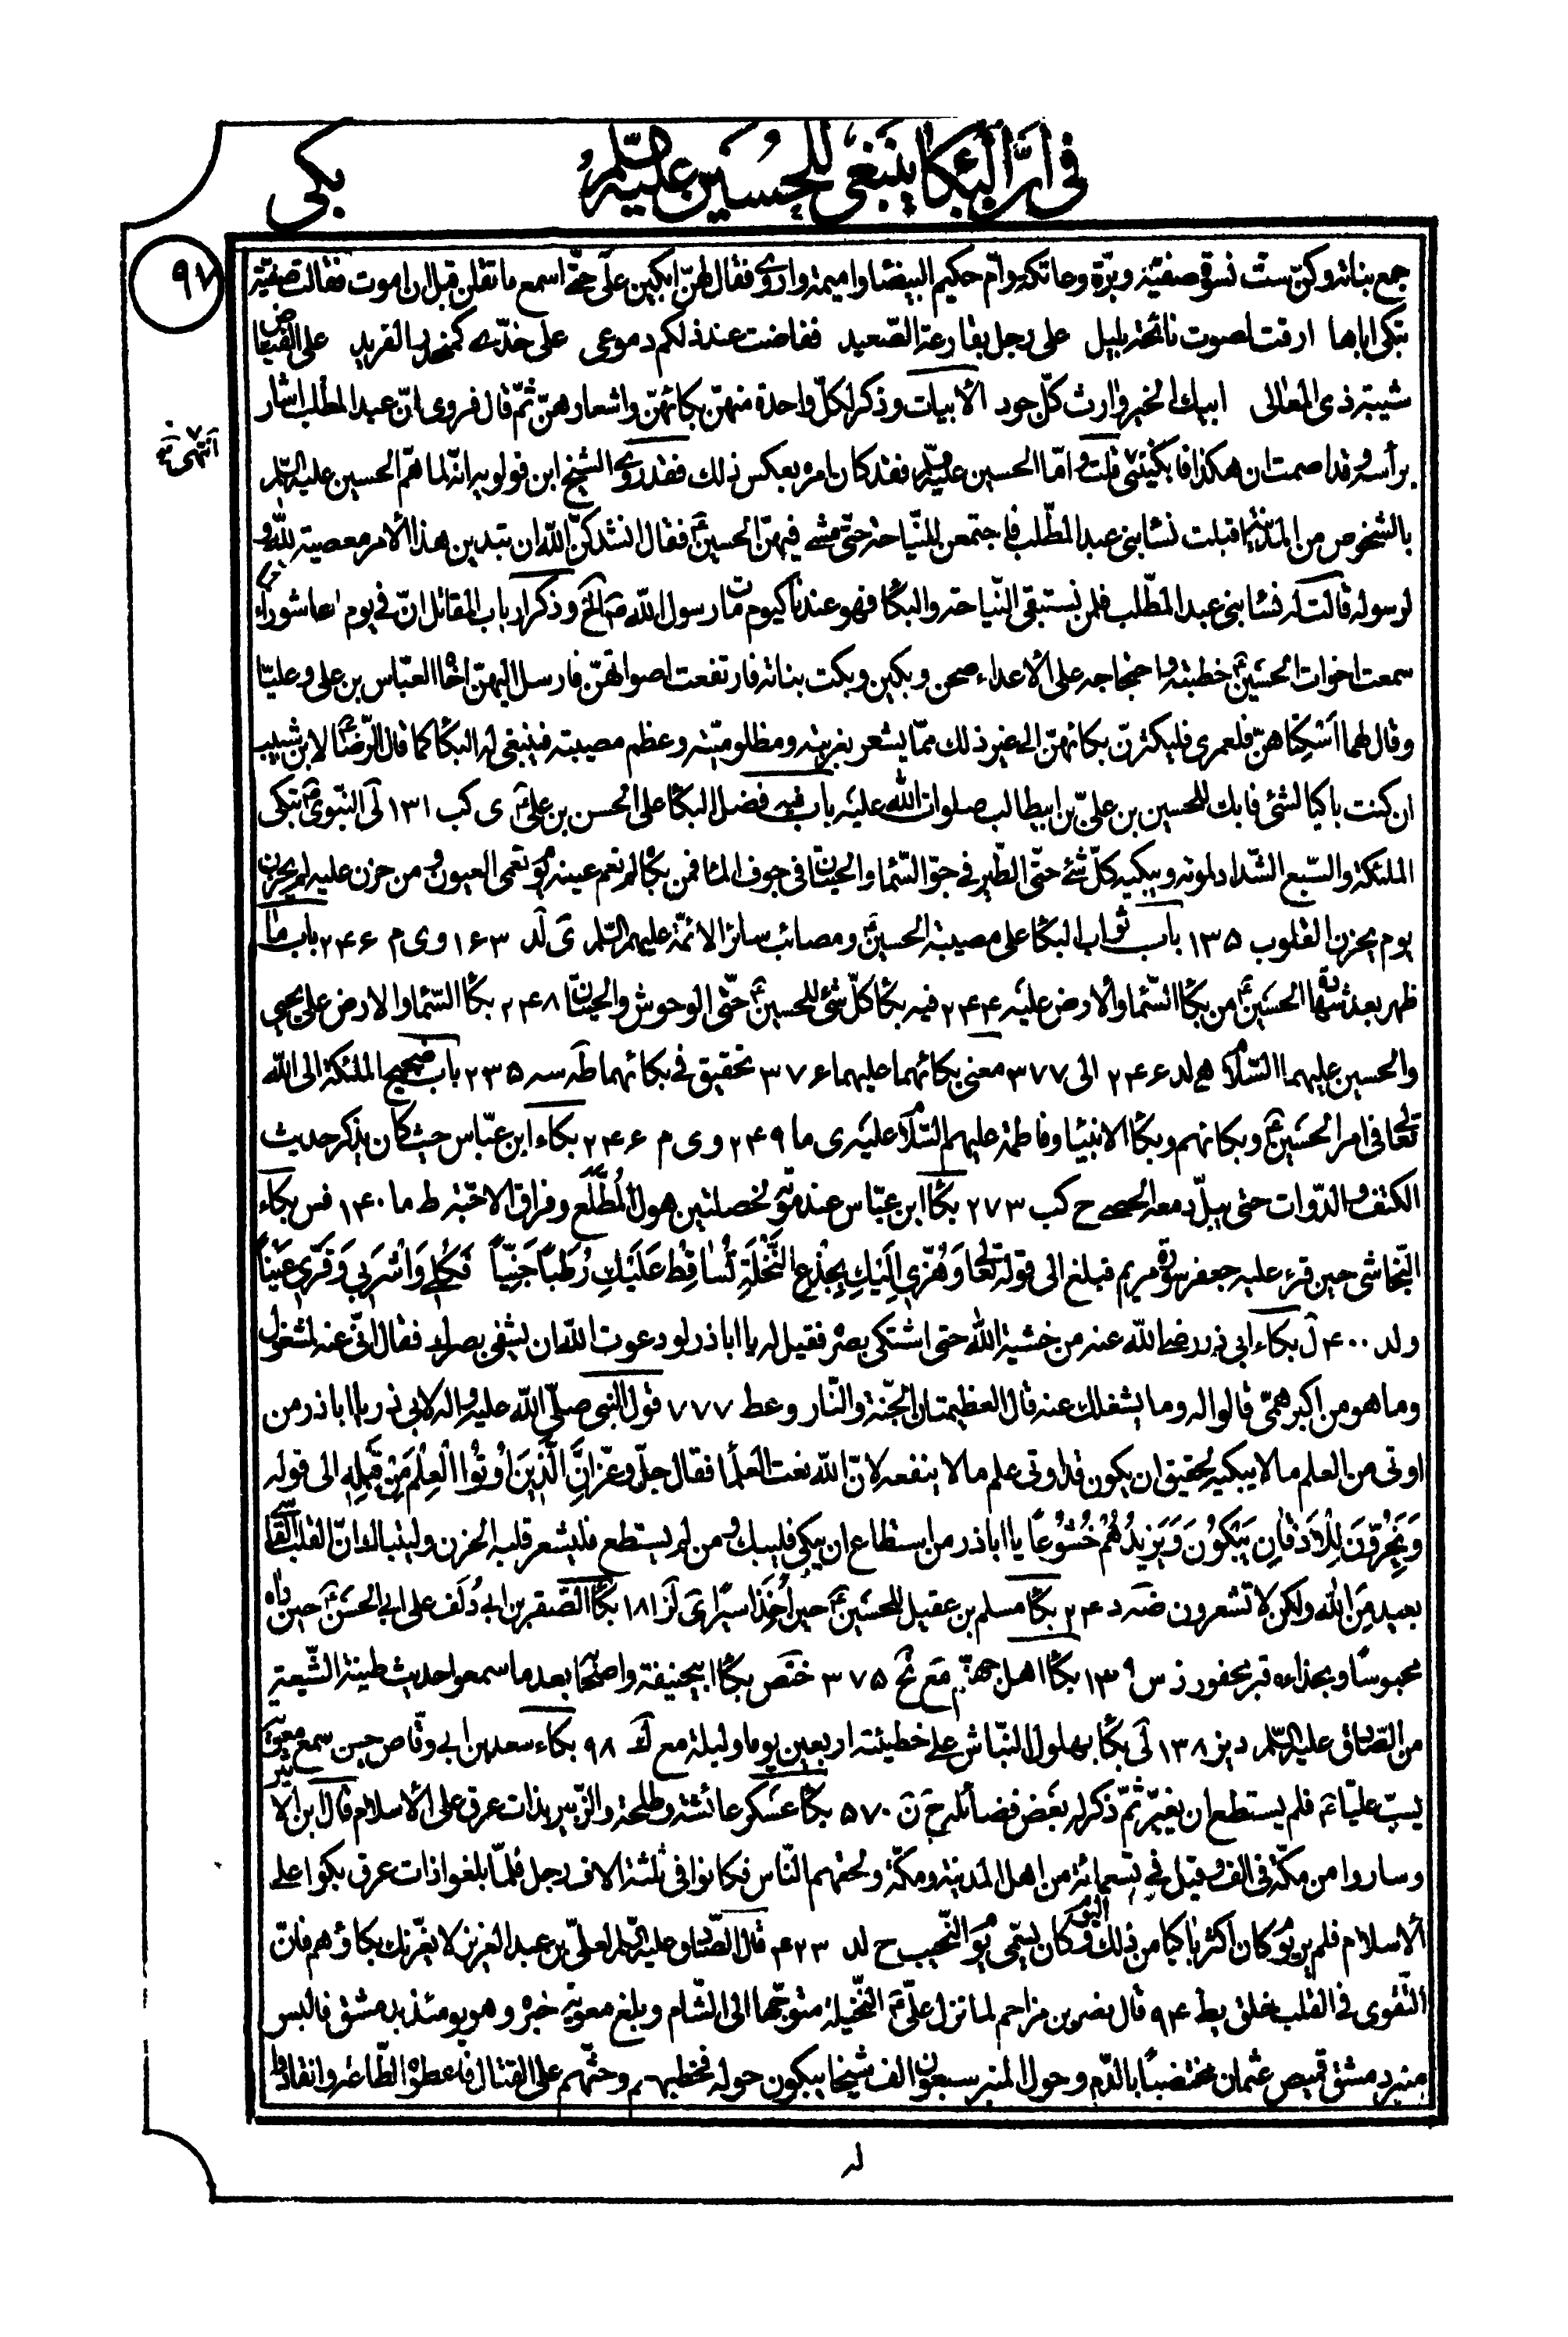 في ان البكاء ينبغى للحسين عليه السلم
بكى
٩٧
جمع بناته وكنّ ستّ نسوة صفيّة وبرّة وعاتكة وامّ حكيم البيضاء واميمة واروى فقال لهنّ ابكين علىّ حتّى اسمع ما تقلن قبل ان اموت فقالت صفيّة
تبكى اباها ارقت لصوت نائحة بليل على رجل بقارعة الصّعيد ففاضت عند ذلكم دموعى على خدّى كمنحدر الفريد على الفيّاض
شيبة ذى المعالى ابيك الخير وارث كلّ جود الأبيات وذكر لكلّ واحدة منهنّ بكائهنّ واشعارهنّ ثمّ قال فروى انّ عبد المطلب اشار
برأسه وقد اصمت ان هكذا فابكيننى انتهى قلت وامّا الحسين عليه السلم فقد كان امره بعكس ذلك فقد روى الشيخ ابن قولويه انّه لما همّ الحسين عليه السّلم
بالشخوص من المدينة اقبلت نساء بنى عبد المطّلب فاجتمعن للنّياحة حتّى مشى فيهنّ الحسين ع فقال انشدكنّ اللّه ان تبدين هذا الأمر معصية للّه و
لرسوله قالت له نساء بنى عبد المطّلب فلمن نستبقى النّياحة والبكاء فهو عندنا كيوم مات رسول اللّه ص الخ وذكر ارباب المقاتل انّ في يوم عاشوراء
سمعت اخوات الحسين ع خطبته واحتجاجه على الأعداء صحن وبكين وبكت بناته فارتفعت اصواتهنّ فارسل اليهنّ اخاه العبّاس بن على وعليّا
وقال لهما اسكتاهنّ فلعمرى فليكثرنّ بكائهنّ الى غير ذلك ممّا يشعر بغربته ومظلوميّته وعظم مصيبته فينبغى له البكاء كما قال الرّضا ع لابن شبيب
ان كنت باكيا لشئ فابك للحسين بن علىّ بن ابيطالب صلوات اللّه عليه باب فيه فضل البكاء على الحسن بن على ع ى كب ١٣١ لى النّبوى ص تبكى
الملئكة والسّبع الشّداد لموته ويبكيه كلّ شئ حتّى الطّير في جوّ السّماء والحيتان في جوف الماء فمن بكاه لم تعم عينه يوم تعمى العيون ومن حزن عليه لم يحزن
يوم يحزن القلوب ١٣٥ باب ثواب البكاء على مصيبة الحسين ع ومصائب سائر الائمّة عليهم السّلم ى لد ١٦٣ وى م ٢٤٦ باب ما
ظهر بعد شهادة الحسين ع من بكاء السّماء والأرض عليه ٢٤٤ فيه بكاء كلّ شئ للحسين ع حتّى الوحوش والحيتان ٢٤٨ بكاء السّماء والارض على يحيى
والحسين عليهما السّلام ه لد ٢٤٦ الى ٣٧٧ معنى بكائهما عليهما ٣٧٦ تحقيق في بكائهما طه سه ٢٣٥ باب ضجيج الملئكة الى اللّه
تعالى في امر الحسين ع وبكائهم وبكاء الانبياء وفاطمة عليهم السّلام عليه ى ما ٢٤٩ وى م ٢٤٦ بكاء ابن عبّاس حيث كان يذكر حديث
الكتف والدّوات حتى يبلّ دمعه الحصى ح كب ٢٧٣ بكاء ابن عبّاس عند موته لخصلتين هول المُطَّلَع وفراق الاحبّة ط ما ١٤٠ فس بكاء
النّجاشى حين قرء عليه جعفر سورة مريم فبلغ الى قوله تعالى وَهُزّى اِلَيْكِ بِجِذْعِ النَّخْلَةِ تُسَاقِطْ عَلَيْكِ رُطَباً جَنِيّاً فَكُلِى وَاشْرَبِى وَقَرّى عَيْناً
ولد ٤٠٠ ل بكاء ابى ذر رضى اللّه عنه من خشية اللّه حتى اشتكى بصره فقيل له يا اباذر لو دعوت اللّه ان يشفى بصرك فقال انّى عنه لمشغول
وما هو من اكبر همّى قالوا له وما يشغلك عنه قال العظيمتان الجّنة والنّار وعط ٧٧٧ قول النبى صلّى اللّه عليه واله لابى ذر يا اباذر من
اوتى من العلم ما لا يبكيه لحقيق ان يكون قد اوتى علم ما لا ينفعه لانّ اللّه نعت العلماء فقال جلّ وعزّ اِنَّ الَّذِينَ اُوتُوا الْعِلْمَ مِنْ قَبْلِهِ الى قوله
وَيَخِرُّونَ لِلْاَذْقَانِ يَبْكُونَ وَيَزِيدُهُمْ خُشُوعاً يا اباذر من استطاع ان يبكى فليبك ومن لم يستطع فليشعر قلبه الحزن وليتباك انّ القلب القاسى
بعيد من اللّه ولكن لا تشعرون ضه د ٢٤ بكاء مسلم بن عقيل للحسين ع حين اُخِذ اسيرا ى لز ١٨١ بكاء الصّقر بن ابى دُلَف على ابى الحسن ع حين راه
محبوسًا وبحذاءه قبر محفور ز س ١٣٩ بكاء اهل جهنّم مع نح ٣٧٥ ختص بكاء ابيحنيفة واصحابه بعد ما سمعوا حديث طينة الشّيعة
من الصّادق عليه السّلم د يز ١٣٨ لى بكاء بهلول النّباش على خطيئته اربعين يوما وليلة مع ك ٩٨ بكاء سعد بن ابى وقّاص حين سمع معوية
يسبّ عليّا ع فلم يستطع ان يغيّر ثمّ ذكر له بعض فضائله ح ن ٥٧٠ بكاء عسكر عائشة وطلحة والزّبير بذات عرق على الأسلام قال ابن الاثير
وساروا من مكّة في الف وقيل في تسعمائة من اهل المدينة ومكّة ولحقهم النّاس فكانوا في ثلثة الاف رجل فلمّا بلغوا ذات عرق بكوا على
الأسلام فلم ير يوم كان اكثر باكيا من ذلك اليوم وكان يسمّى يوم النّحيب ح لد ٤٢٣ قال الصّادق عليه السّلم لعلىّ بن عبد العزيز لا يغّرنك بكاؤهم فانّ
التّقوى في القلب خلق يط ٩٤ قال نصر بن مزاحم لما نزل علىّ ع النّخيلة متوجّها الى الشام وبلغ معوية خبره وهو يومئذ بدمشق فالبس
منبر دمشق قميص عثمان مختضبًا بالدّم وحول المنبر سبعون الف شيخا يبكون حوله فخطبهم وحثّهم على القتال فاعطوه الطّاعة وانقادوا
له